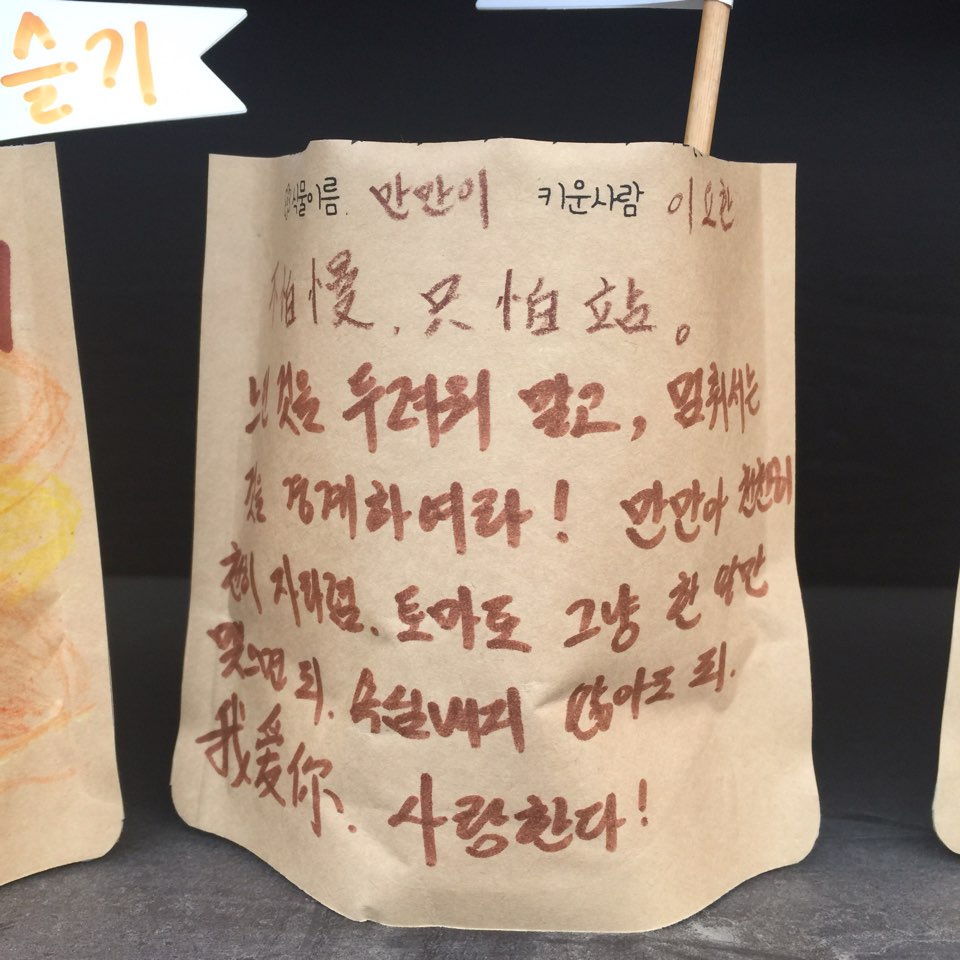 슬기
식물이름 만만이 키운사람 이요한
不怕慢, 只怕站。
느린 것을 두려워 말고, 멈춰서는
것을 경계하여라! 만만아 천천히
천히 자라렴. 토마토 그냥 한 알만
맺으면 되. 욕심내지 않아도 되.
我爱你. 사랑한다!